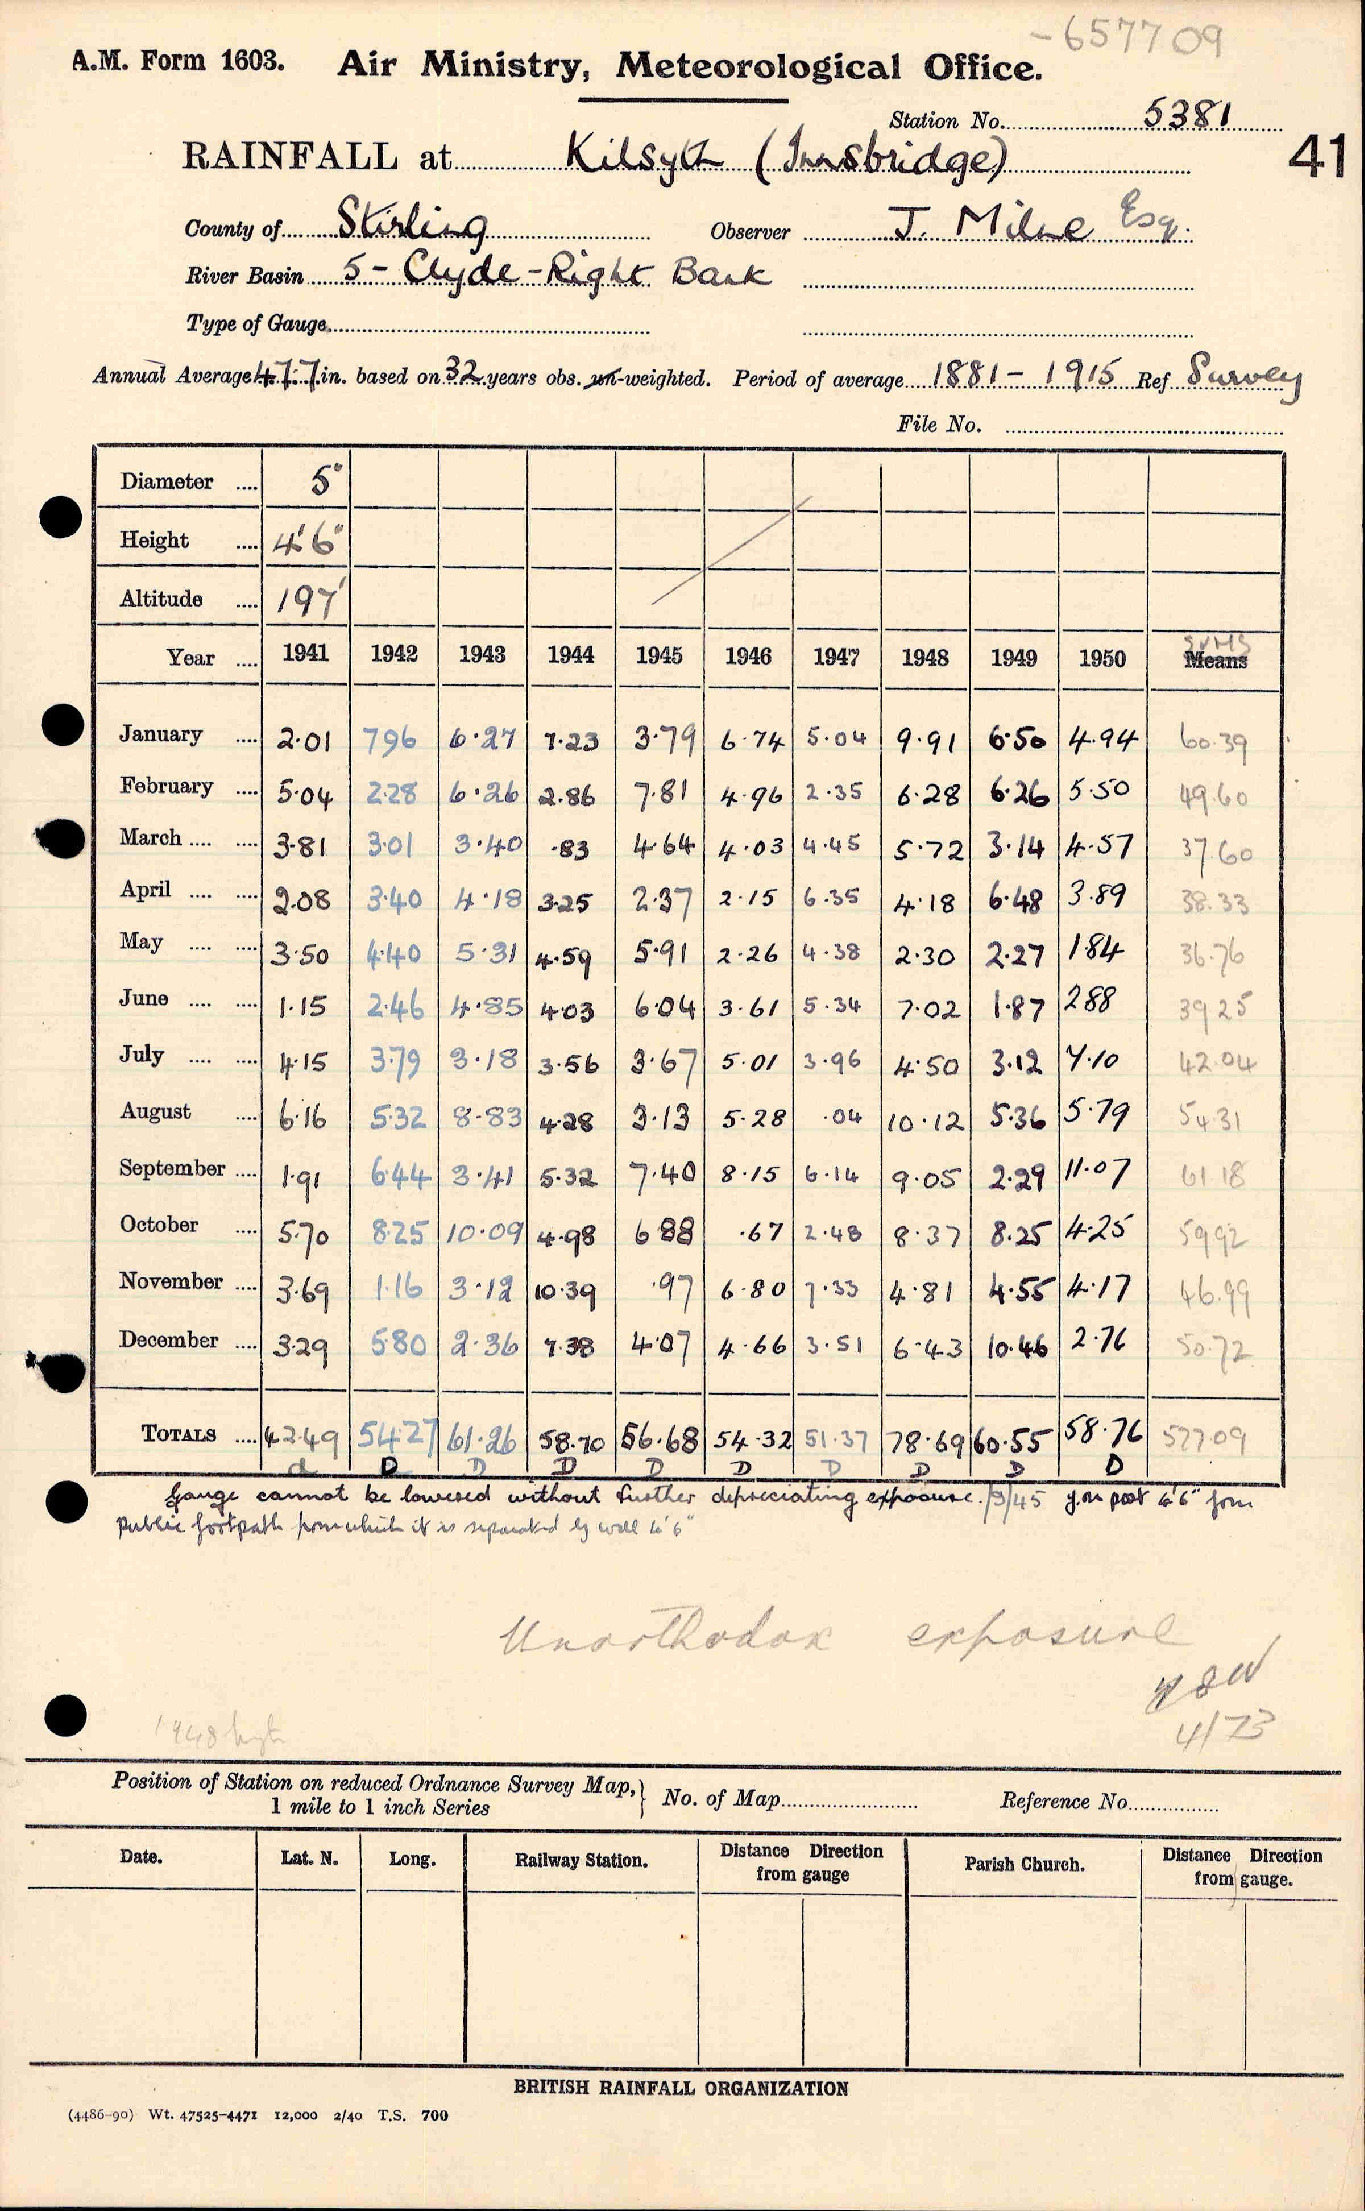 -657709
A.M. Form 1603. Air Ministry, Meteorological Office.
Station No. 5381
RAINFALL at Kilsyth (Innsbridge) 41
County of Stirling Observer J. Milne Esq.
River Basin 5 - Clyde - Right Bank
Type of Gauge
Annual Average 47.7 in. based on 32 years obs. un-weighted. Period of average 1881 - 1915 Ref Survey
File No.
Diameter .... 5"
Height .... 4'6"
Altitude .... 197'
Year .... 1941 1942 1943 1944 1945 1946 1947 1948 1949 1950 Means SUMS
January .... 2.01 7.96 6.27 7.23 3.79 6.74 5.04 9.91 6.50 4.94 60.39
February .... 5.04 2.28 6.26 2.86 7.81 4.96 2.35 6.28 6.26 5.50 49.60
March .... .... 3.81 3.01 3.40 .83 4.64 4.03 4.45 5.72 3.14 4.57 37.60
April .... .... 2.08 3.40 4.18 3.25 2.37 2.15 6.35 4.18 6.48 3.89 38.33
May .... .... 3.50 4.40 5.31 4.59 5.91 2.26 4.38 2.30 2.27 1.84 36.76
June .... .... 1.15 2.46 4.85 4.03 6.04 3.61 5.34 7.02 1.87 2.88 39.25
July .... .... 4.15 3.79 3.18 3.56 3.67 5.01 3.96 4.50 3.12 7.10 42.04
August .... 6.16 5.32 8.83 4.28 3.13 5.28 .04 10.12 5.36 5.79 54.31
September .... 1.91 6.44 3.41 5.32 7.40 8.15 6.14 9.05 2.29 11.07 61.18
October .... 5.70 8.25 10.09 4.98 6.88 .67 2.48 8.37 8.25 4.25 59.92
November .... 3.69 1.16 3.12 10.39 .97 6.80 7.33 4.81 4.55 4.17 46.99
December .... 3.29 5.80 2.36 7.38 4.07 4.66 3.51 6.43 10.46 2.76 50.72
TOTALS .... 42.49 54.27 61.26 58.70 56.68 54.32 51.37 78.69 60.55 58.76 577.09
d D D D D D D D D D
Gauge cannot be lowered without further depreciating exposure. /3/45 post 4'6" from
public footpath from which it is separated by wall 4'6"
Unorthodox exposure
4/73
1948 high
Position of Station on reduced Ordnance Survey Map, } No. of Map Reference No.
1 mile to 1 inch Series
Date. Lat. N. Long. Railway Station. Distance Direction from gauge Parish Church. Distance Direction from gauge.
BRITISH RAINFALL ORGANIZATION
(4486-90) Wt. 47525-4471 12,000 2/40 T.S. 700